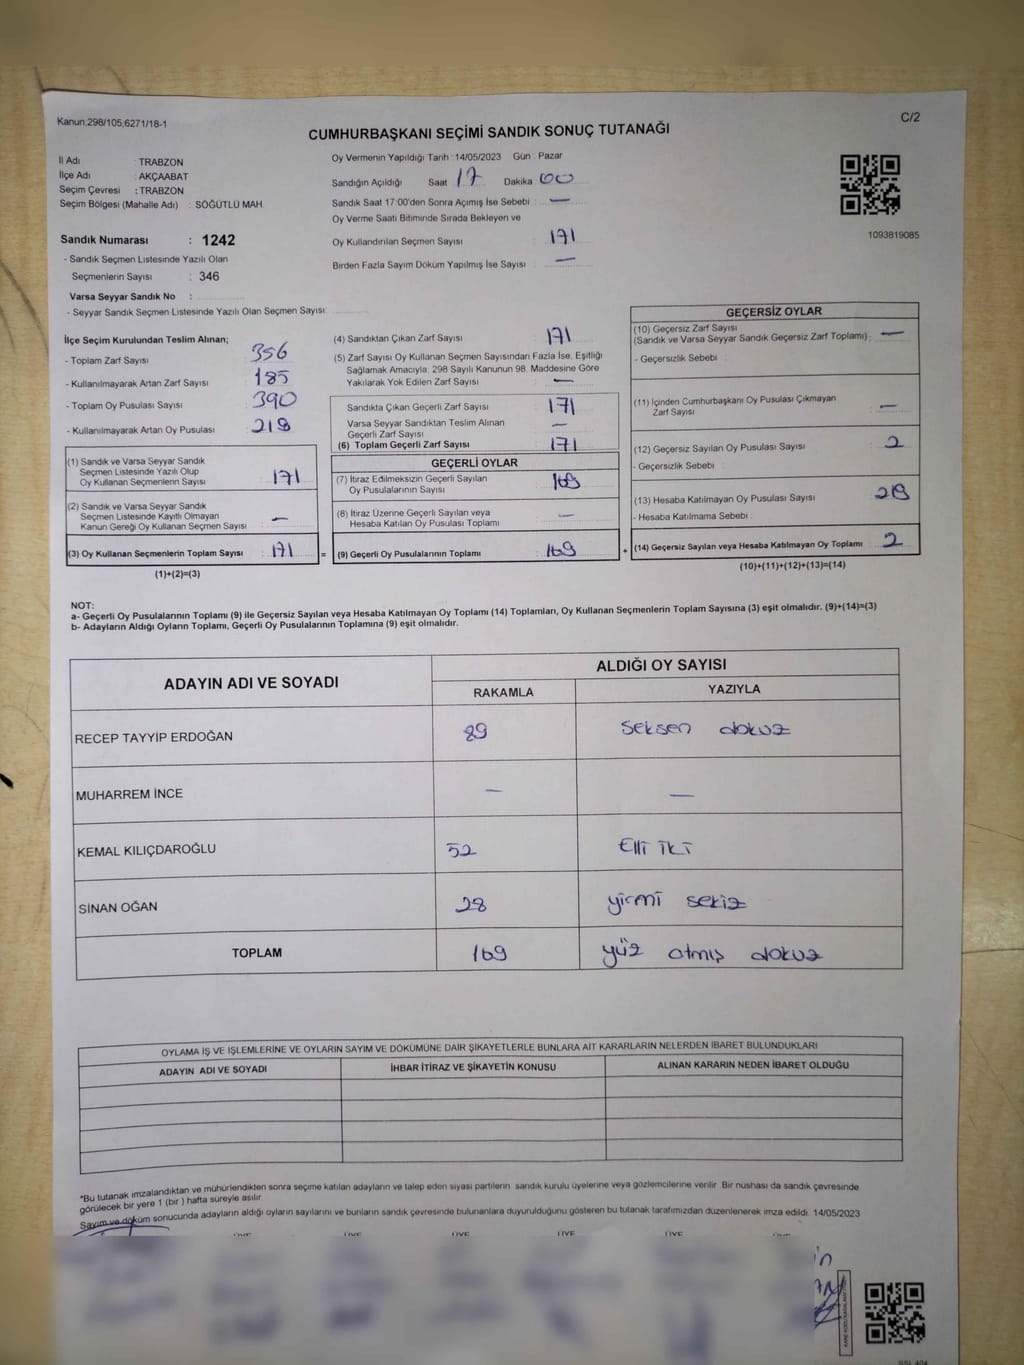 Kanun;298/105;6271/18-1
C/2
CUMHURBAŞKANI SEÇİMİ SANDIK SONUÇ TUTANAĞI
İl Adı : TRABZON
İlçe Adı : AKÇAABAT
Seçim Çevresi : TRABZON
Seçim Bölgesi (Mahalle Adı) : SÖĞÜTLÜ MAH.
Sandık Numarası : 1242
- Sandık Seçmen Listesinde Yazılı Olan
Seçmenlerin Sayısı : 346
Varsa Seyyar Sandık No :
- Seyyar Sandık Seçmen Listesinde Yazılı Olan Seçmen Sayısı:
Oy Vermenin Yapıldığı Tarih : 14/05/2023 Gün : Pazar
Sandığın Açıldığı Saat 17 Dakika 00
Sandık Saat 17:00'den Sonra Açımış İse Sebebi : —
Oy Verme Saati Bitiminde Sırada Bekleyen ve
Oy Kullandırılan Seçmen Sayısı : 171
Birden Fazla Sayım Döküm Yapılmış İse Sayısı : —
1093819085
İlçe Seçim Kurulundan Teslim Alınan;
- Toplam Zarf Sayısı : 356
- Kullanılmayarak Artan Zarf Sayısı : 185
- Toplam Oy Pusulası Sayısı : 390
- Kullanılmayarak Artan Oy Pusulası : 219
(1) Sandık ve Varsa Seyyar Sandık
Seçmen Listesinde Yazılı Olup
Oy Kullanan Seçmenlerin Sayısı : 171
(2) Sandık ve Varsa Seyyar Sandık
Seçmen Listesinde Kayıtlı Olmayan
Kanun Gereği Oy Kullanan Seçmen Sayısı : —
(3) Oy Kullanan Seçmenlerin Toplam Sayısı : 171 =
(1)+(2)=(3)
(4) Sandıktan Çıkan Zarf Sayısı : 171
(5) Zarf Sayısı Oy Kullanan Seçmen Sayısından Fazla İse, Eşitliği
Sağlamak Amacıyla, 298 Sayılı Kanunun 98. Maddesine Göre
Yakılarak Yok Edilen Zarf Sayısı : —
Sandıkta Çıkan Geçerli Zarf Sayısı : 171
Varsa Seyyar Sandıktan Teslim Alınan
Geçerli Zarf Sayısı : —
(6) Toplam Geçerli Zarf Sayısı : 171
GEÇERLİ OYLAR
(7) İtiraz Edilmeksizin Geçerli Sayılan
Oy Pusulalarının Sayısı : 169
(8) İtiraz Üzerine Geçerli Sayılan veya
Hesaba Katılan Oy Pusulası Toplamı : —
(9) Geçerli Oy Pusulalarının Toplamı : 169 +
GEÇERSİZ OYLAR
(10) Geçersiz Zarf Sayısı
(Sandık ve Varsa Seyyar Sandık Geçersiz Zarf Toplamı) : —
- Geçersizlik Sebebi :
(11) İçinden Cumhurbaşkanı Oy Pusulası Çıkmayan
Zarf Sayısı : —
(12) Geçersiz Sayılan Oy Pusulası Sayısı : 2
- Geçersizlik Sebebi :
(13) Hesaba Katılmayan Oy Pusulası Sayısı : 219
- Hesaba Katılmama Sebebi :
(14) Geçersiz Sayılan veya Hesaba Katılmayan Oy Toplamı : 2
(10)+(11)+(12)+(13)=(14)
NOT:
a- Geçerli Oy Pusulalarının Toplamı (9) ile Geçersiz Sayılan veya Hesaba Katılmayan Oy Toplamı (14) Toplamları, Oy Kullanan Seçmenlerin Toplam Sayısına (3) eşit olmalıdır. (9)+(14)=(3)
b- Adayların Aldığı Oyların Toplamı, Geçerli Oy Pusulalarının Toplamına (9) eşit olmalıdır.
ADAYIN ADI VE SOYADI
ALDIĞI OY SAYISI
RAKAMLA YAZIYLA
RECEP TAYYİP ERDOĞAN 89 seksen dokuz
MUHARREM İNCE — —
KEMAL KILIÇDAROĞLU 52 Elli iki
SİNAN OĞAN 28 yirmi sekiz
TOPLAM 169 yüz atmış dokuz
OYLAMA İŞ VE İŞLEMLERİNE VE OYLARIN SAYIM VE DÖKÜMÜNE DAİR ŞİKAYETLERLE BUNLARA AİT KARARLARIN NELERDEN İBARET BULUNDUKLARI
ADAYIN ADI VE SOYADI İHBAR İTİRAZ VE ŞİKAYETİN KONUSU ALINAN KARARIN NEDEN İBARET OLDUĞU
*Bu tutanak imzalandıktan ve mühürlendikten sonra seçime katılan adayların ve talep eden siyasi partilerin sandık kurulu üyelerine veya gözlemcilerine verilir. Bir nüshası da sandık çevresinde
görülecek bir yere 1 (bir ) hafta süreyle asılır.
Sayım ve döküm sonucunda adayların aldığı oyların sayılarını ve bunların sandık çevresinde bulunanlara duyurulduğunu gösteren bu tutanak tarafımızdan düzenlenerek imza edildi. 14/05/2023
ÜYE ÜYE ÜYE ÜYE ÜYE